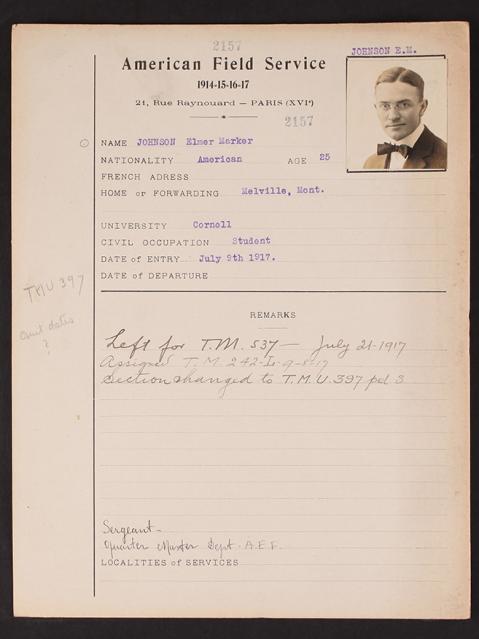 2157
JOHNSON E.M.
American Field Service
1914-15-16-17
21, Rue Raynouard — PARIS (XVIe)
2157
NAME JOHNSON Elmer Marker
NATIONALITY American AGE 25
FRENCH ADRESS
HOME or FORWARDING Melville, Mont.
UNIVERSITY Cornell
CIVIL OCCUPATION Student
DATE of ENTRY July 9th 1917.
DATE of DEPARTURE
TMU 397
dates
?
REMARKS
Left for T.M. 537 — July 21-1917
Assigned T.M. 242-
Section changed to T.M.U. 397 pd 3
Sergeant -
Quarter Master Dept. A.E.F.
LOCALITIES of SERVICES